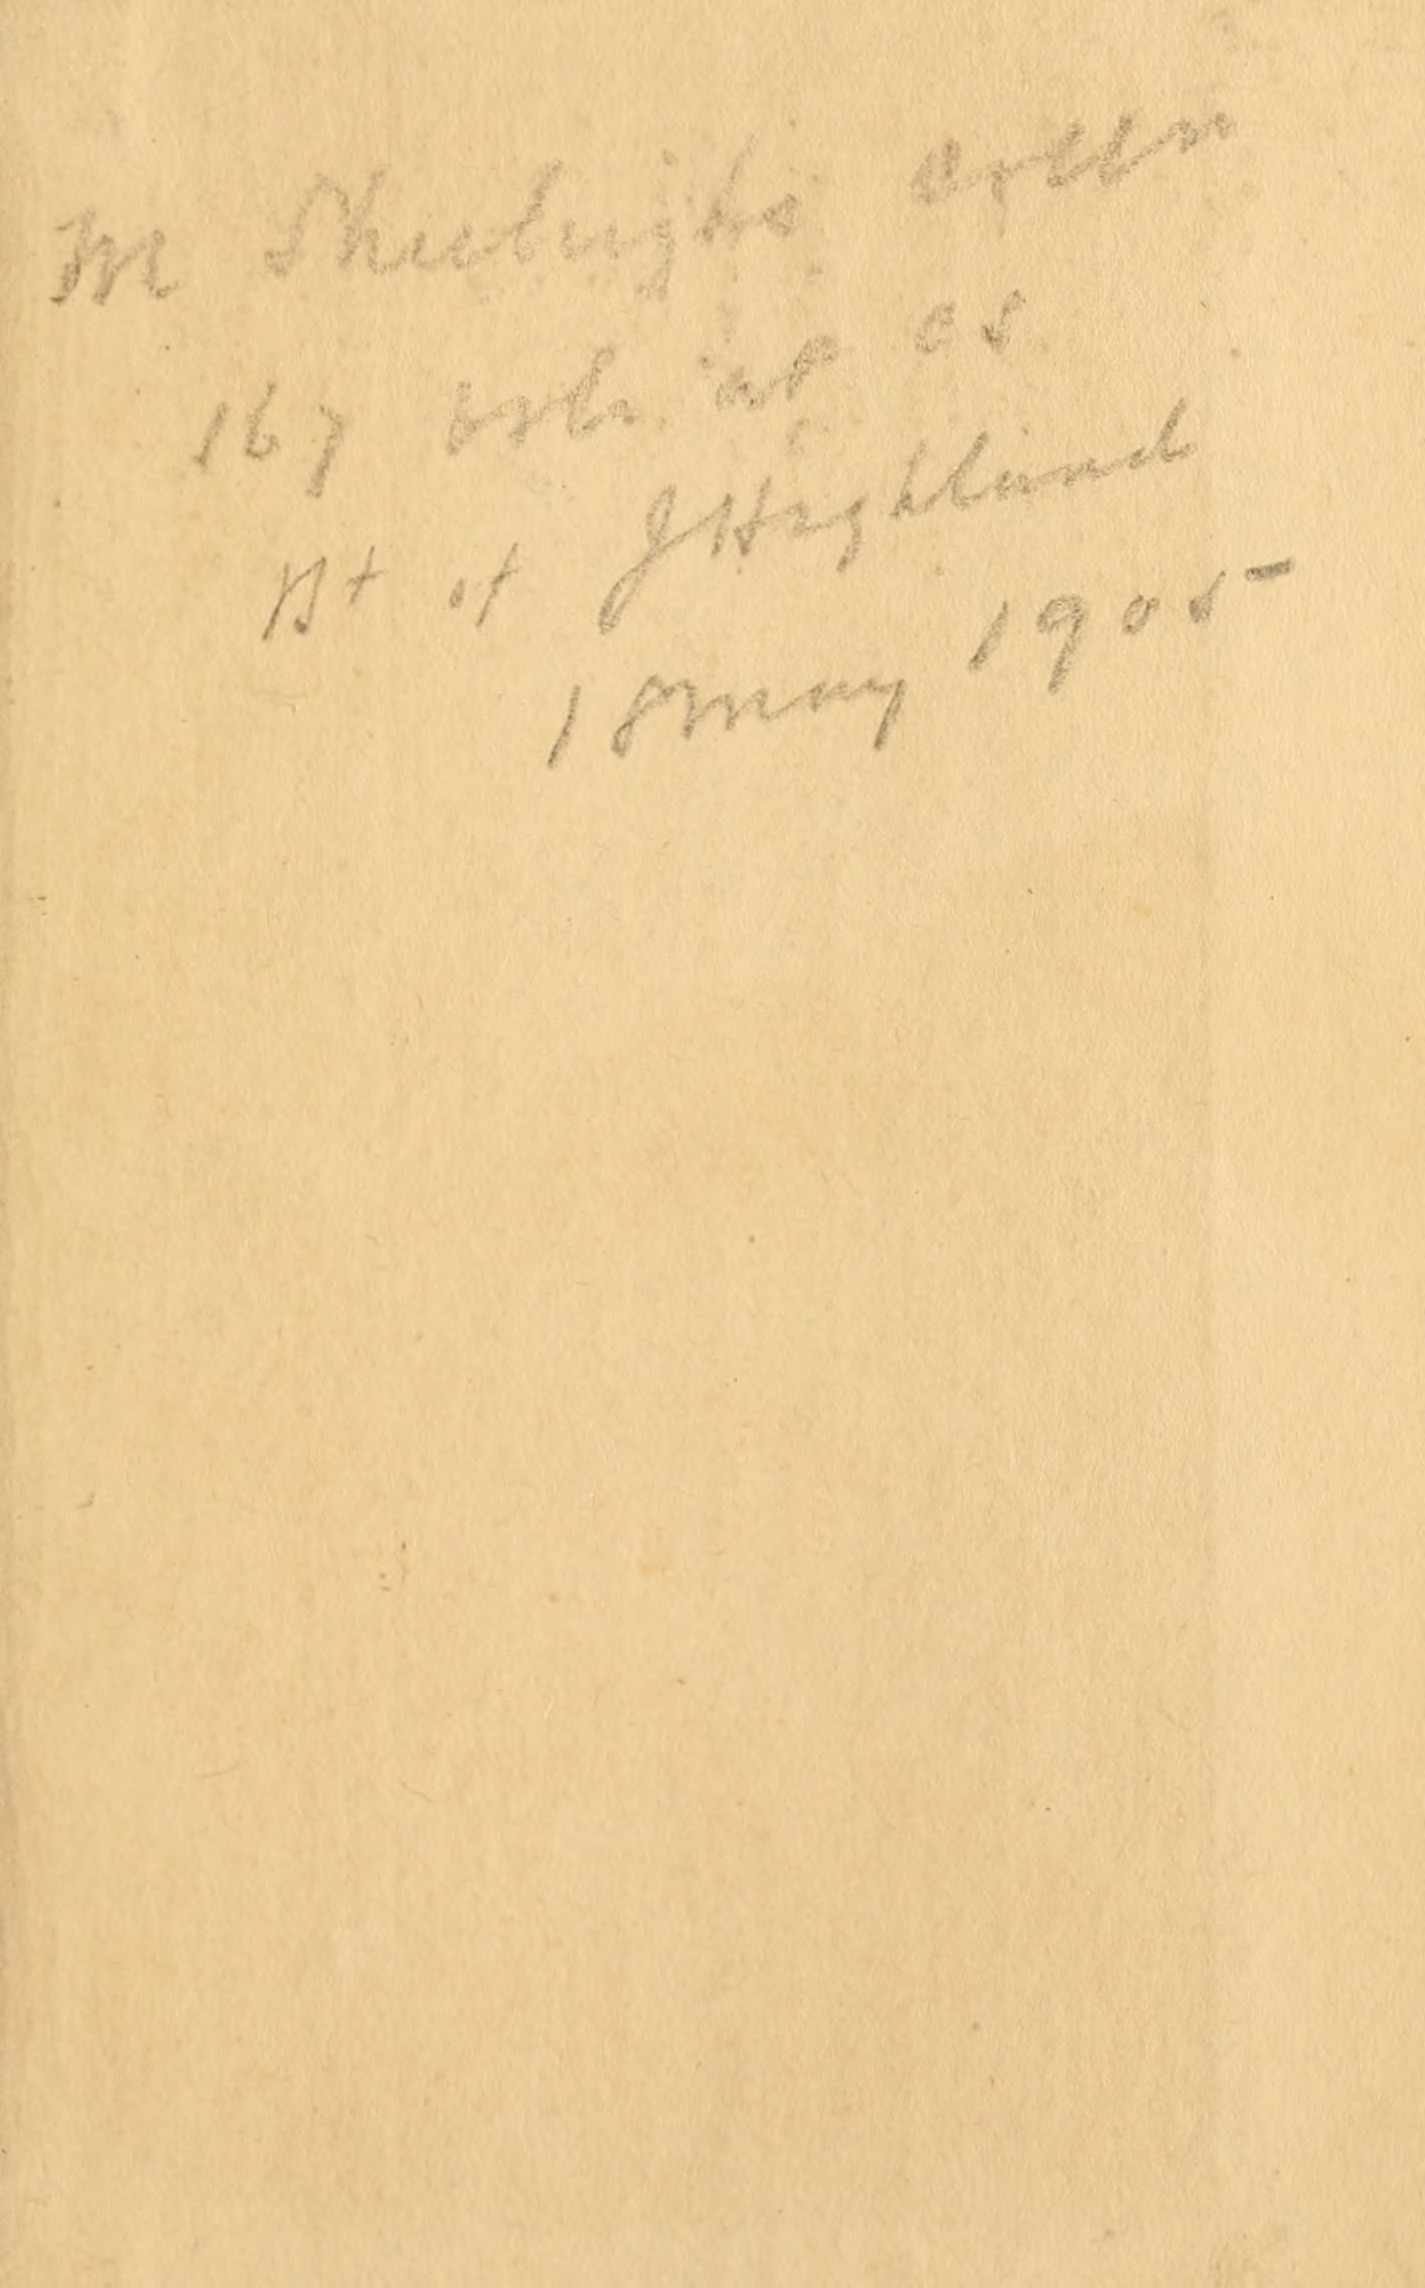 M Sheibright Colln
167 vols at 05
Bt of J Highland
18 May 1905